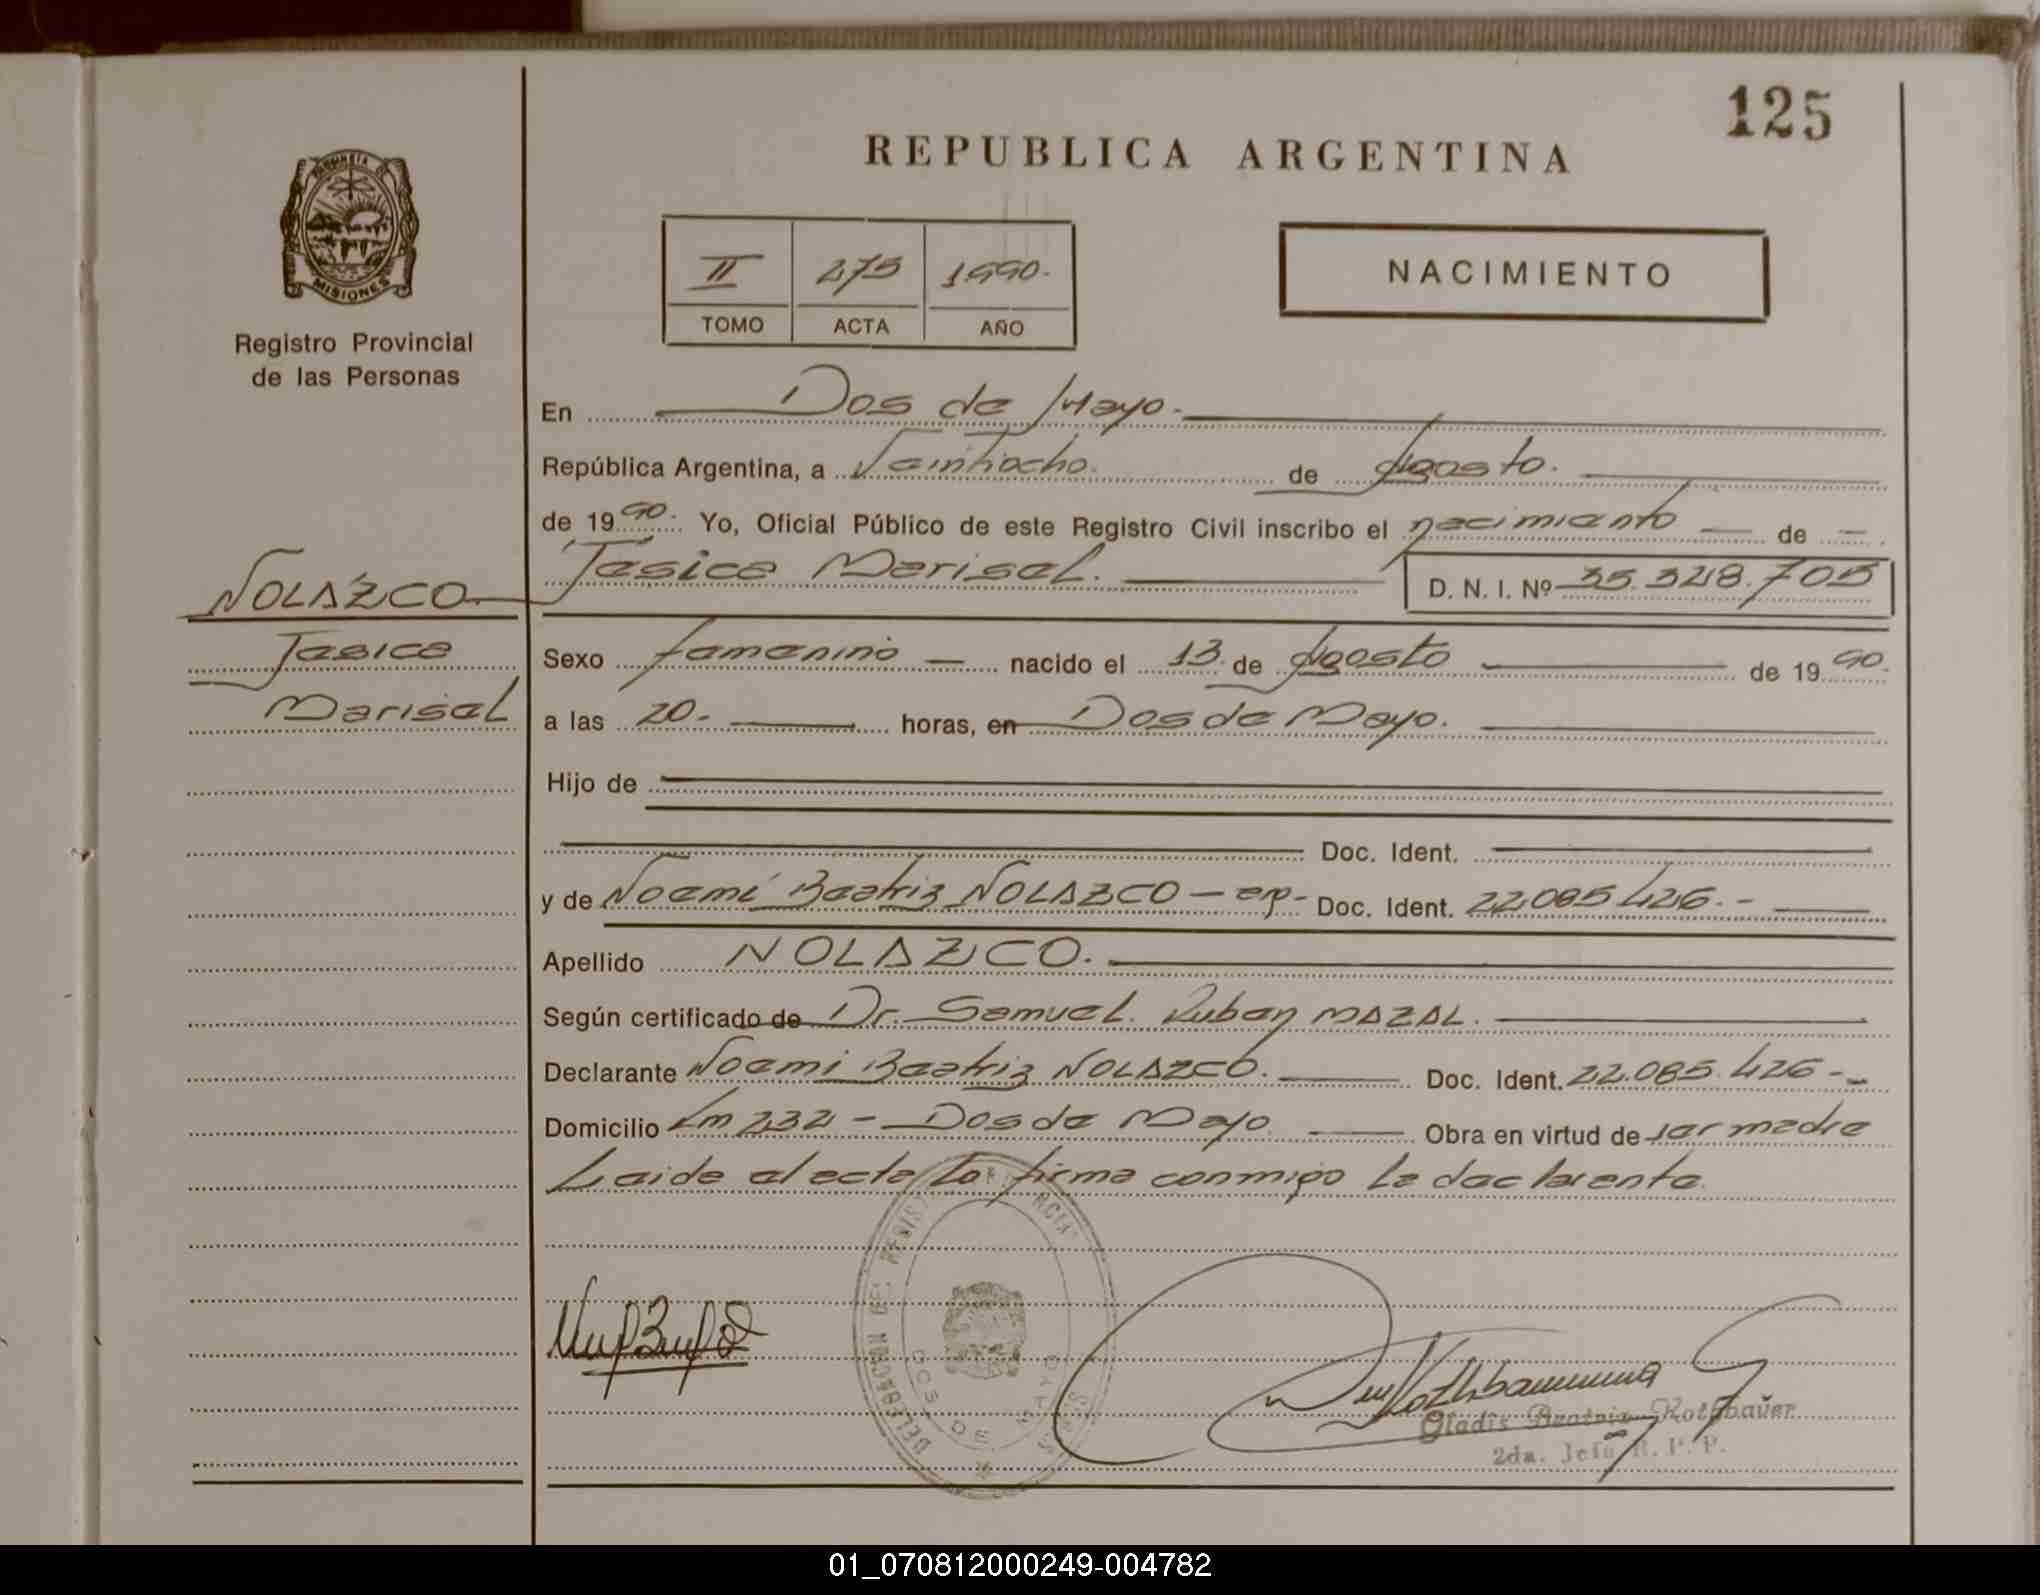 125
REPUBLICA ARGENTINA
MISIONES
Registro Provincial
de las Personas
II 275 1.990.-
TOMO ACTA AÑO
NACIMIENTO
En Dos de Mayo.-
República Argentina, a Veintiocho. de Agosto.
de 1990.- Yo, Oficial Público de este Registro Civil inscribo el nacimiento — de —
NOLAZCO.
Jesica Marisel.
D. N. I. Nº 35.328.705
Jesica
Sexo femenino — nacido el 13 de Agosto de 1990.
Marisel
a las 20.- horas, en Dos de Mayo.
Hijo de
Doc. Ident.
y de Noemí Beatriz NOLAZCO — Doc. Ident. 22.085.426.-
Apellido NOLAZCO.
Según certificado de Dr. Samuel Ruben MAZAL.
Declarante Noemi Beatriz NOLAZCO. Doc. Ident. 22.085.426.-
Domicilio Km 232 - Dos de Mayo Obra en virtud de ser madre
Leide el acta la firma conmigo la declarente.
DOS DE MAYO
Gladis Beatriz Rothbauer
2da. Jefa R. P. P.
01_070812000249-004782